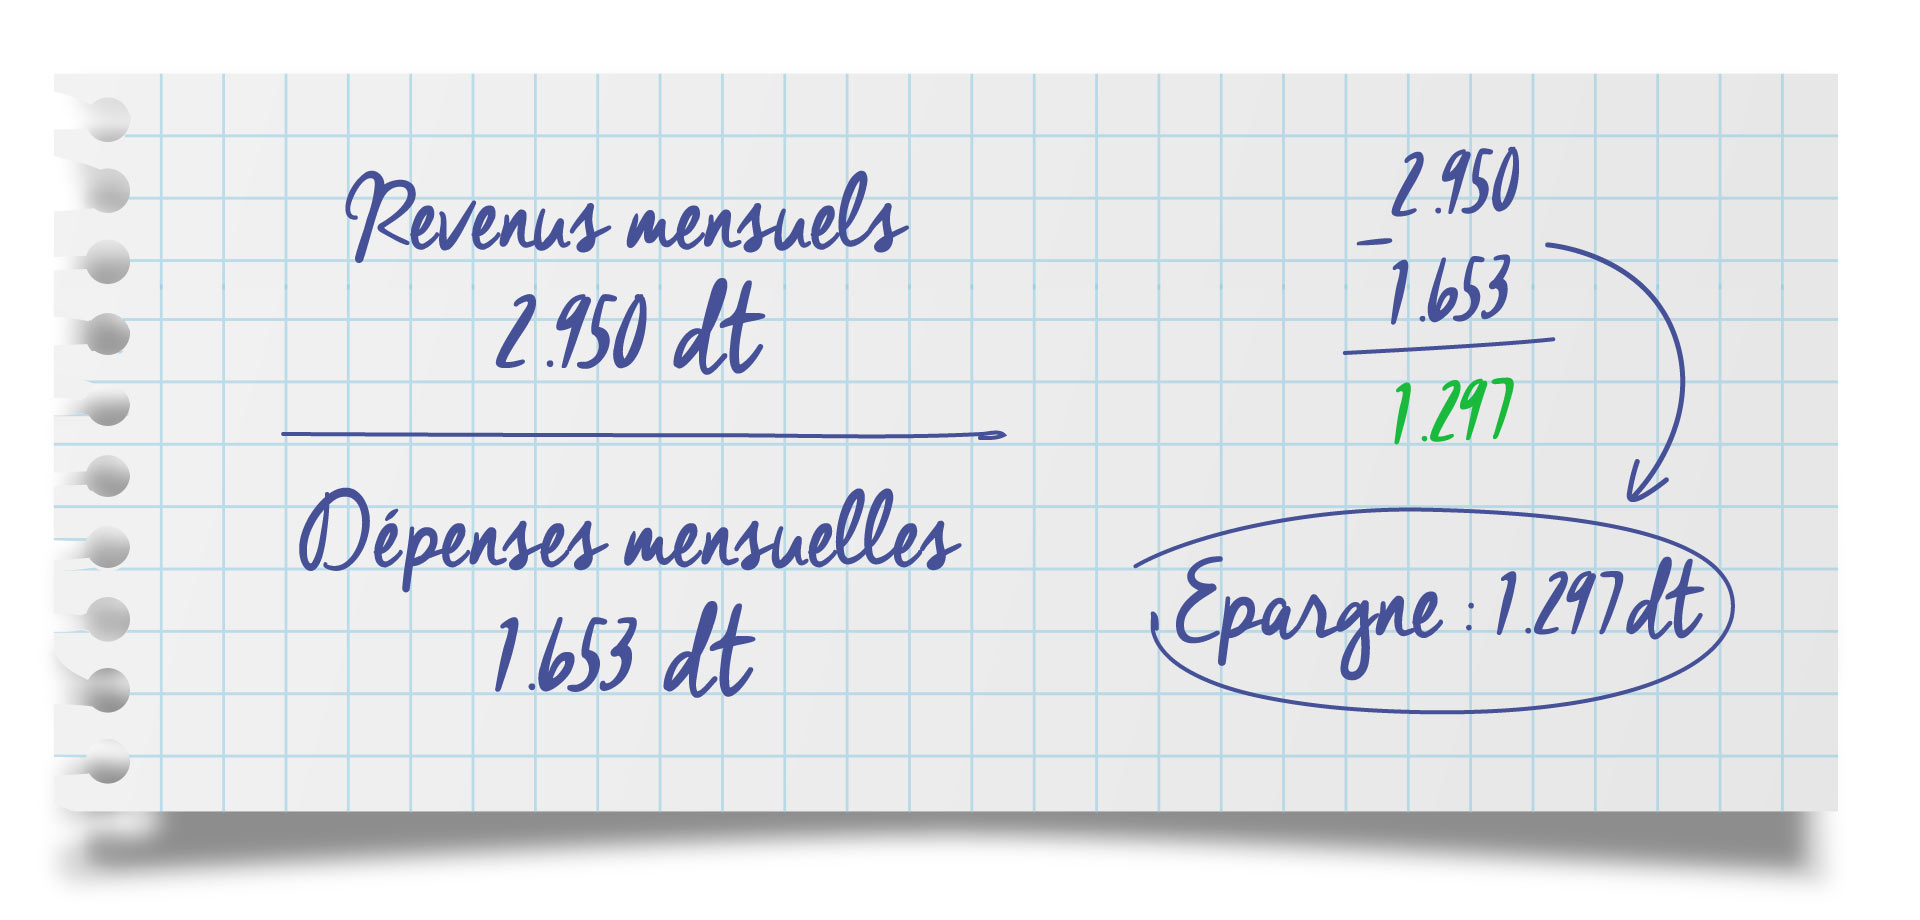 Revenus mensuels
2.950 dt
Dépenses mensuelles
1.653 dt
2.950
–
1.653
1.297
Epargne : 1.297dt